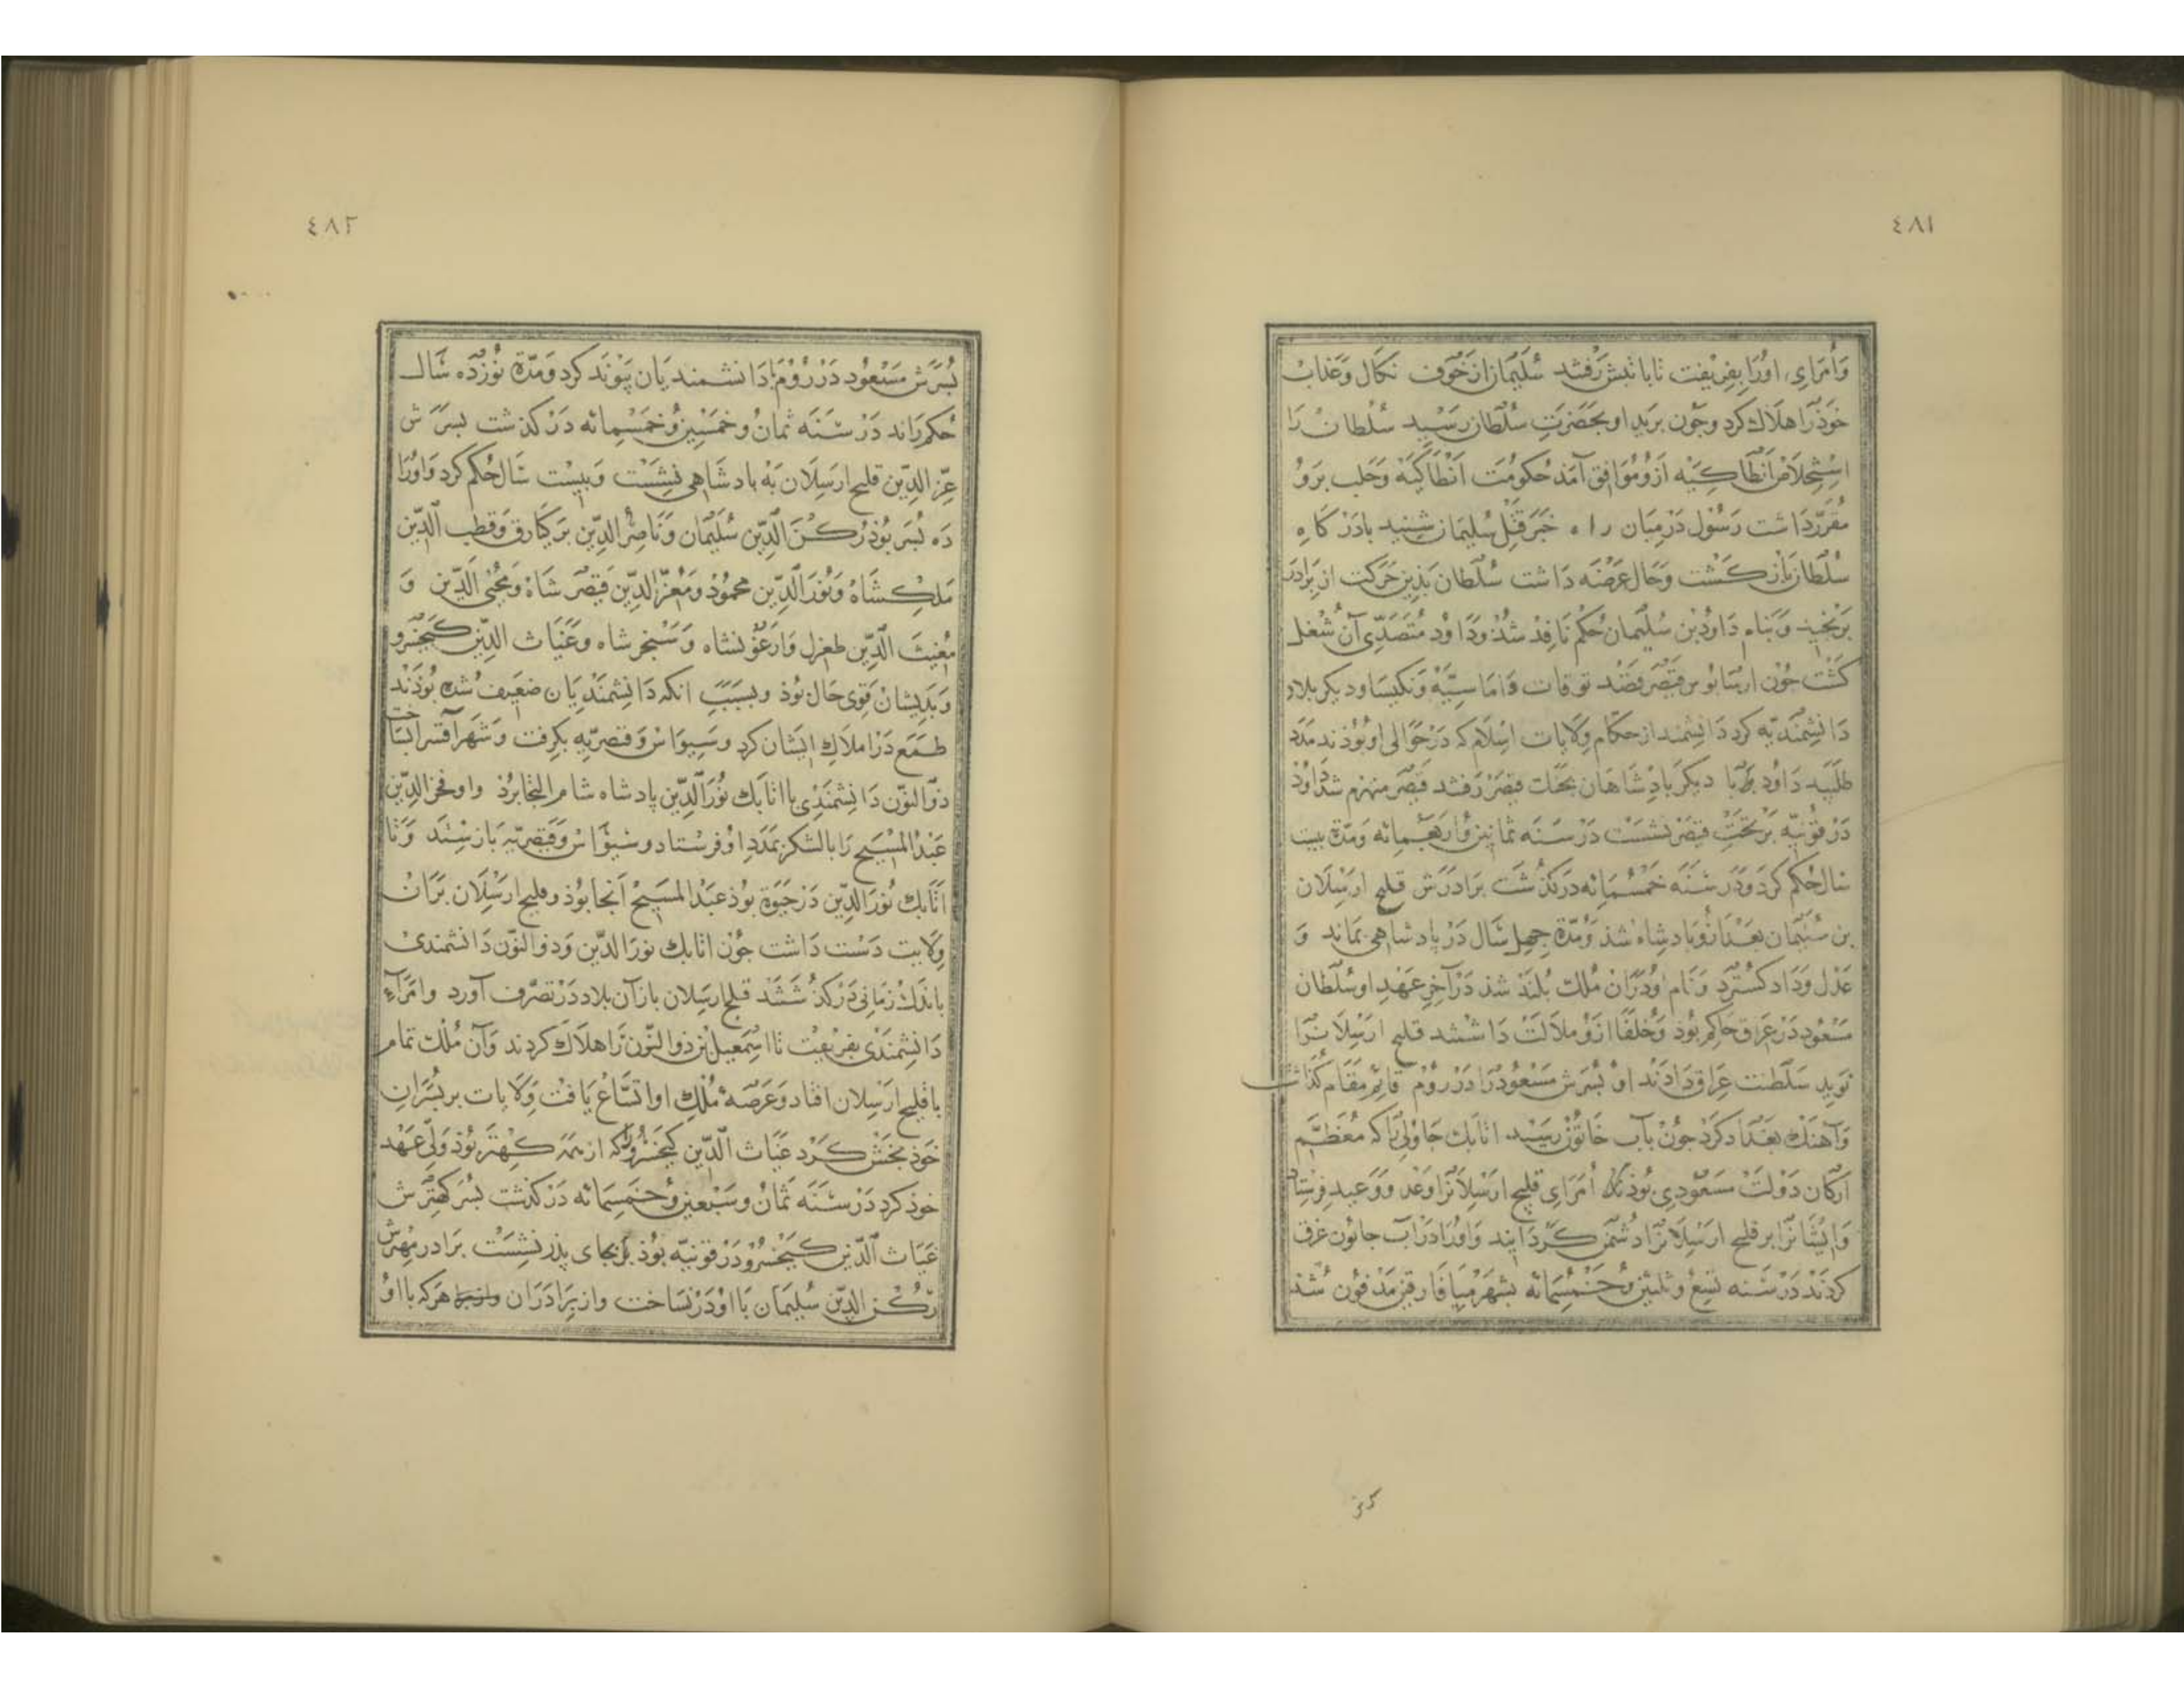 ٤٨١
وَاُمَرَاءِ اورا بفریفت تا با تبش رفتند سلیمان از خوف نکال و عذاب
خوذ را هلاک کرد و چون برید او بحضرت سلطان رسید سلطان را
استخلاص انطاکیه ازو موافق آمذ حکومت انطاکیه و حلب برو
مقرر داشت رسول در میان راه خبر قتل سلیمان شنید با درکاه
سلطان بازکشت و حال عرضه داشت سلطان بذین حرکت از برادر
برنجید و بنام داود بن سلیمان حکم نافذ شذ و داود متصدی آن شغل
کشت چون ارمانوس قیصر قصد توقات و اماسیّه و نکیسا و دیکر بلاد
دانشمندیّه کرد دانشمند از حکّام ولایات اسلام که در حوالی او بوذند مدد
طلبید داود با دیکر باذشاهان بجنک قیصر رفتند قیصر منهزم شذ داوذ
در قونیه بر تخت قیصر نشست در سنه ثمانین و اربعمائه و مدّة بیست
سال حکم کرد و در سنه خمسمائه درکذشت برادرش قلیج ارسلان
بن سلیمان بعد ازو بادشاه شذ و مدّة چهل سال در پادشاهی بماند و
عدل و داد کسترد و نام او در آن ملک بلند شذ در آخر عهد او سلطان
مسعود در عراق حاکم بوذ و خلفا ازو ملالت داشتند قلیج ارسلانرا
نوید سلطنت عراق دادند او بسرش مسعود را در روم قایم مقام کذاشت
و آهنک بغداد کرد چون بآب خابور رسید اتابک جاولی که معظم
ارکان دولت مسعودی بوذ امرای قلیج ارسلانرا وعد و وعید فرستاد
و ایشانرا بر قلیج ارسلانرا دشمن کردانید و اورا در آب خابور غرق
کردند در سنه تسع و ثلثین و خمسمائه بشهر میافارقین مدفون شذ
٤٨٢
بسرش مسعود در روم با دانشمندیان پیوند کرد و مدّة نوزده سال
حکم راند در سنه ثمان و خمسین و خمسمائه درکذشت بسرش
عزّ الدین قلیج ارسلان به بادشاهی نشست و بیست سال حکم کرد و اورا
ده بسر بوذ رکن الدین سلیمان و ناصر الدین برکیارق و قطب الدین
ملکشاه و نور الدین محمود و معزّ الدین قیصر شاه و محیی الدین و
مغیث الدین طغرل و ارغونشاه و سنجر شاه و غیاث الدین کیخسرو
و بذیشان قوی حال بوذ و بسبب انکه دانشمندیان ضعیف شده بوذند
طمع در املاک ایشان کرد و سیواس و قیصریه بکرفت و شهر آقسرا بساخت
ذو النون دانشمندی با اتابک نور الدین پادشاه شام التجا برذ و او فخر الدین
عبد المسیح را با لشکر بمدد او فرستاد و سیواس و قیصریه باز ستد و تا
اتابک نور الدین در حیوة بوذ عبد المسیح آنجا بوذ و قلیج ارسلان بر آن
ولایت دست داشت چون اتابک نور الدین و ذو النون دانشمندی
باندک زمانی درکذشتند قلیج ارسلان باز آن بلاد در تصرف آورد و امرآء
دانشمندی بفریفت تا اسمعیل بن ذو النون را هلاک کردند و آن ملک تمام
با قلیج ارسلان افتاد و عرصهٔ ملک او اتساع یافت ولایات بر بسران
خوذ بخش کرد غیاث الدین کیخسرو را که از همه کهتر بوذ ولی عهد
خوذ کرد در سنه ثمان و سبعین و خمسمائه درکذشت بسر کهترش
غیاث الدین کیخسرو در قونیه بوذ بر بجای پذر نشست برادر مهترش
رکن الدین سلیمان با او در نساخت و از برادران هر که با او